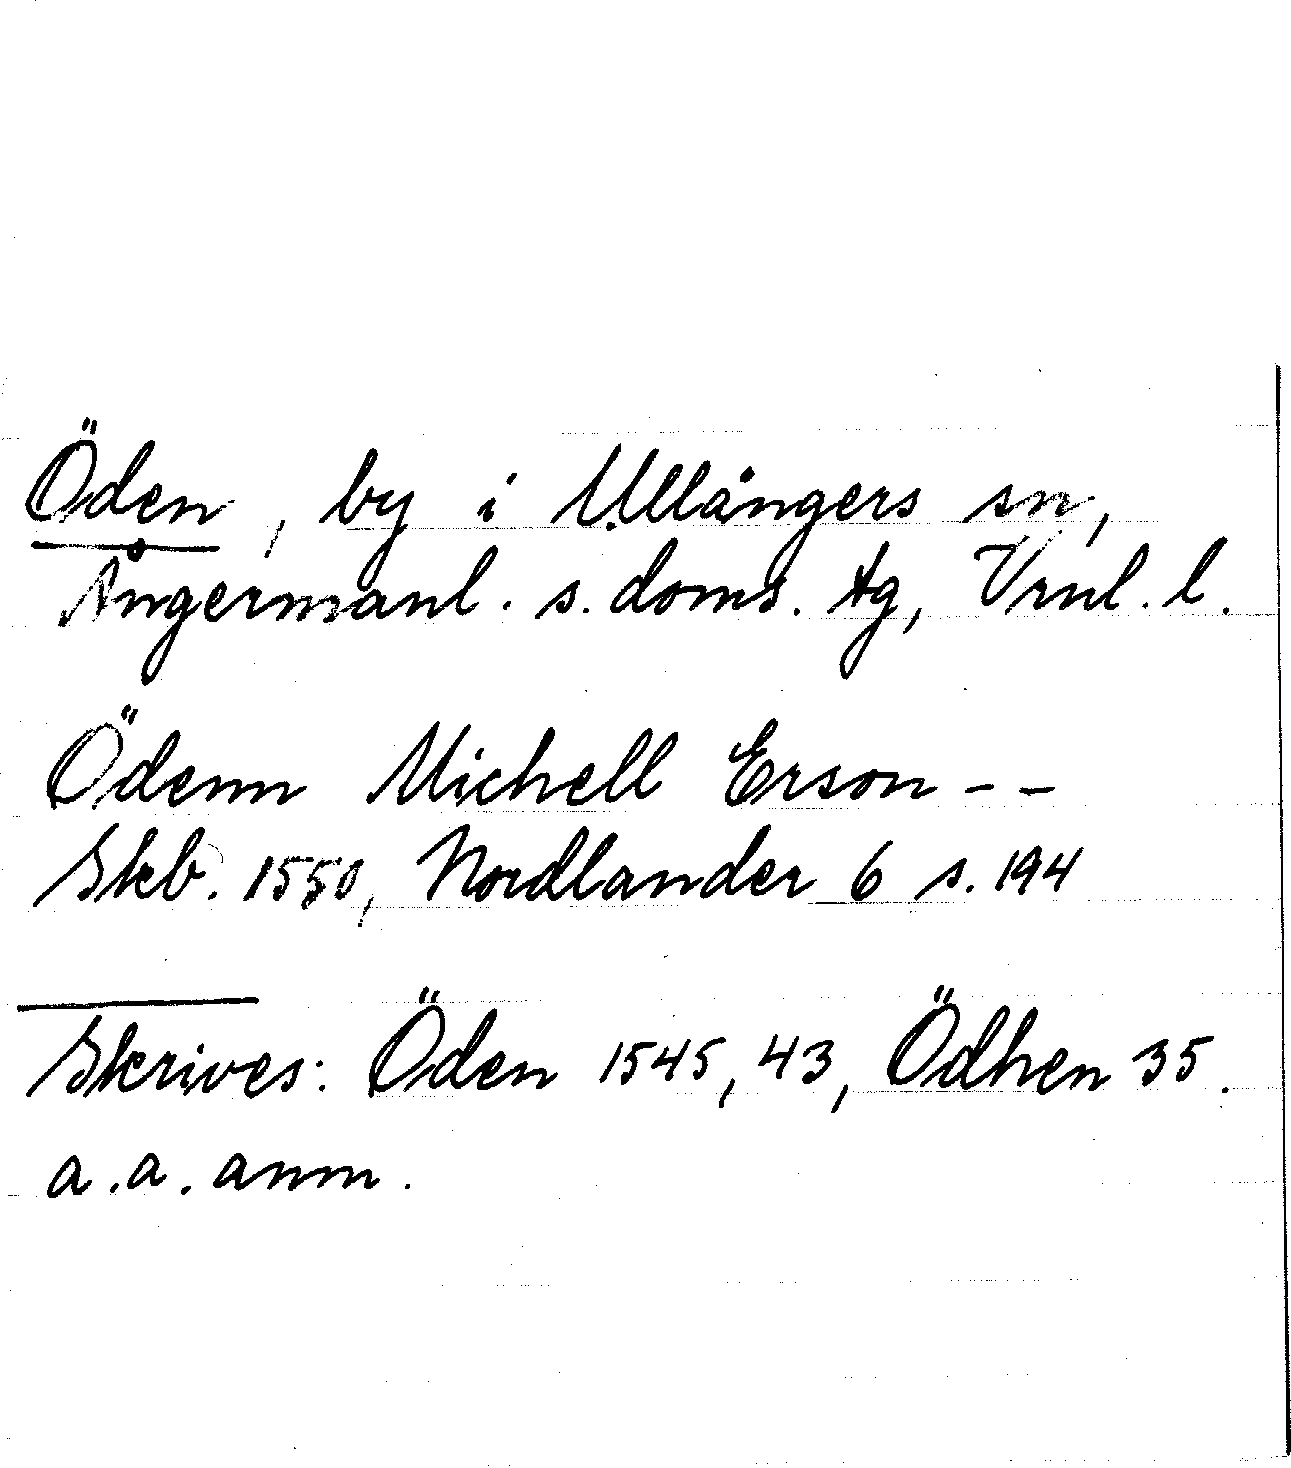 Öden, by i Ullångers sn,
Ångermanl. s. doms. tg, Vrnl. l.
Ödenn Michell Erson - -
Skb. 1550, Nordlander 6 s. 194
Skrives: Öden 1545, 43, Ödhen 35.
a. a. anm.